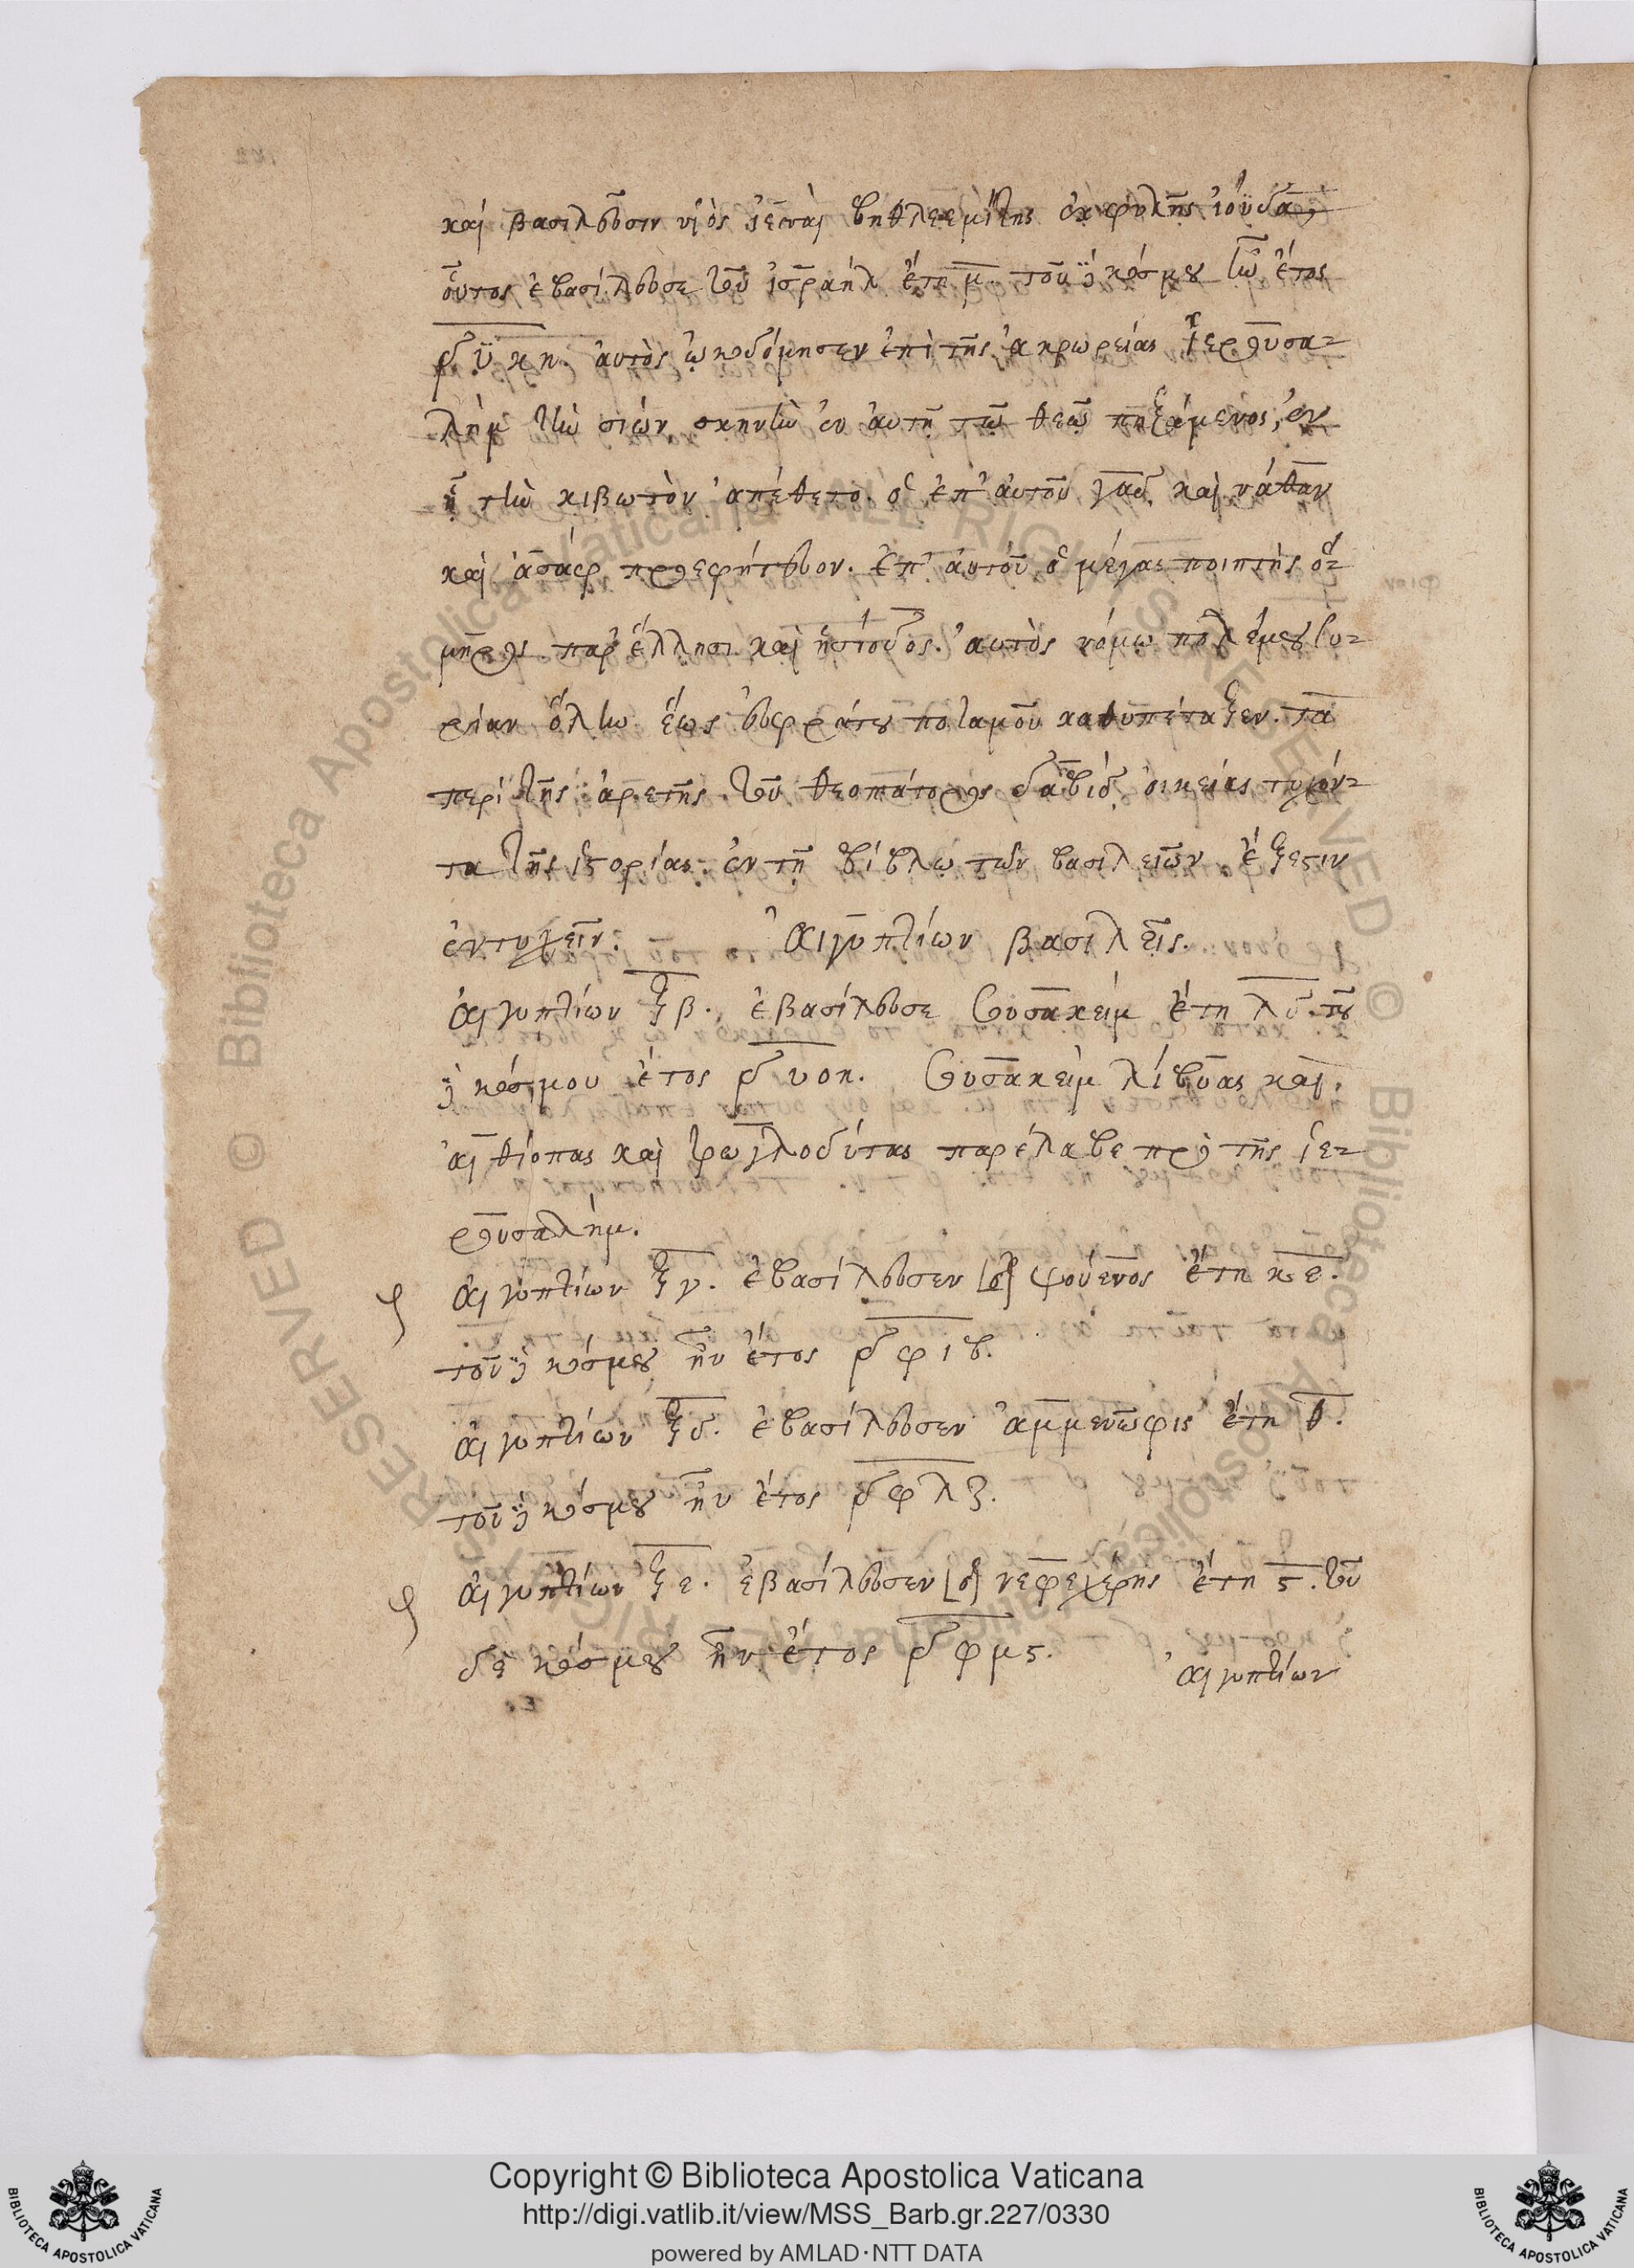 καὶ βασιλεῦσιν υἱὸς ἰεσσαὶ βηθλεεμίτης ἐκ φυλῆς ἰούδα,
οὗτος ἐβασίλευσε τοῦ ἰσραὴλ ἔτη μ. τοῦ δὲ κόσμου ἦν ἔτος
͵δυκη. αὐτὸς ᾠκοδόμησεν ἐπὶ τῆς ἀκρωρείας ἱερουσα-
λὴμ τὴν σιών, σκηνὴν ἐν αὐτῇ τῷ θεῷ πηξάμενος, ἐν
ᾗ τὴν κιβωτὸν ἀπέθετο. ἐπ' αὐτοῦ γὰδ καὶ νάθαν
καὶ ἀσὰφ προεφήτευον. ἐπ' αὐτοῦ ὁ μέγας ποιητὴς ὅ-
μηρος παρ' ἕλλησι καὶ ἡσίοδος. αὐτὸς νόμῳ πολέμου συ-
ρίαν ὅλην ἕως εὐφράτου ποταμοῦ καθυπέταξεν. τὰ
περὶ τῆς ἀρετῆς τοῦ θεοπάτορος δαβὶδ οἰκείας τυχόν-
τα τῆς ἱστορίας ἐν τῇ βίβλῳ τῶν βασιλειῶν ἔξεστιν
ἐντυχεῖν. Αἰγυπτίων βασιλεῖς.
Αἰγυπτίων ξβ. ἐβασίλευσε Σουσακεὶμ ἔτη λδ. τοῦ
δὲ κόσμου ἔτος ͵δυοη. Σουσακεὶμ λίβυας καὶ
αἰθίοπας καὶ τρωγλοδύτας παρέλαβε πρὸ τῆς ἱε-
ρουσαλήμ.
Αἰγυπτίων ξγ. ἐβασίλευσεν ψούενος ἔτη κε.
τοῦ δὲ κόσμου ἦν ἔτος ͵δφιβ.
Αἰγυπτίων ξδ. ἐβασίλευσεν ἀμμενῶφις ἔτη θ.
τοῦ δὲ κόσμου ἦν ἔτος ͵δφλζ.
Αἰγυπτίων ξε. ἐβασίλευσεν νεφεχέρης ἔτη ϛ. τοῦ
δὲ κόσμου ἦν ἔτος ͵δφμϛ.
Αἰγυπτίων
Copyright © Biblioteca Apostolica Vaticana
http://digi.vatlib.it/view/MSS_Barb.gr.227/0330
powered by AMLAD·NTT DATA
BIBLIOTECA APOSTOLICA VATICANA
BIBLIOTECA APOSTOLICA VATICANA